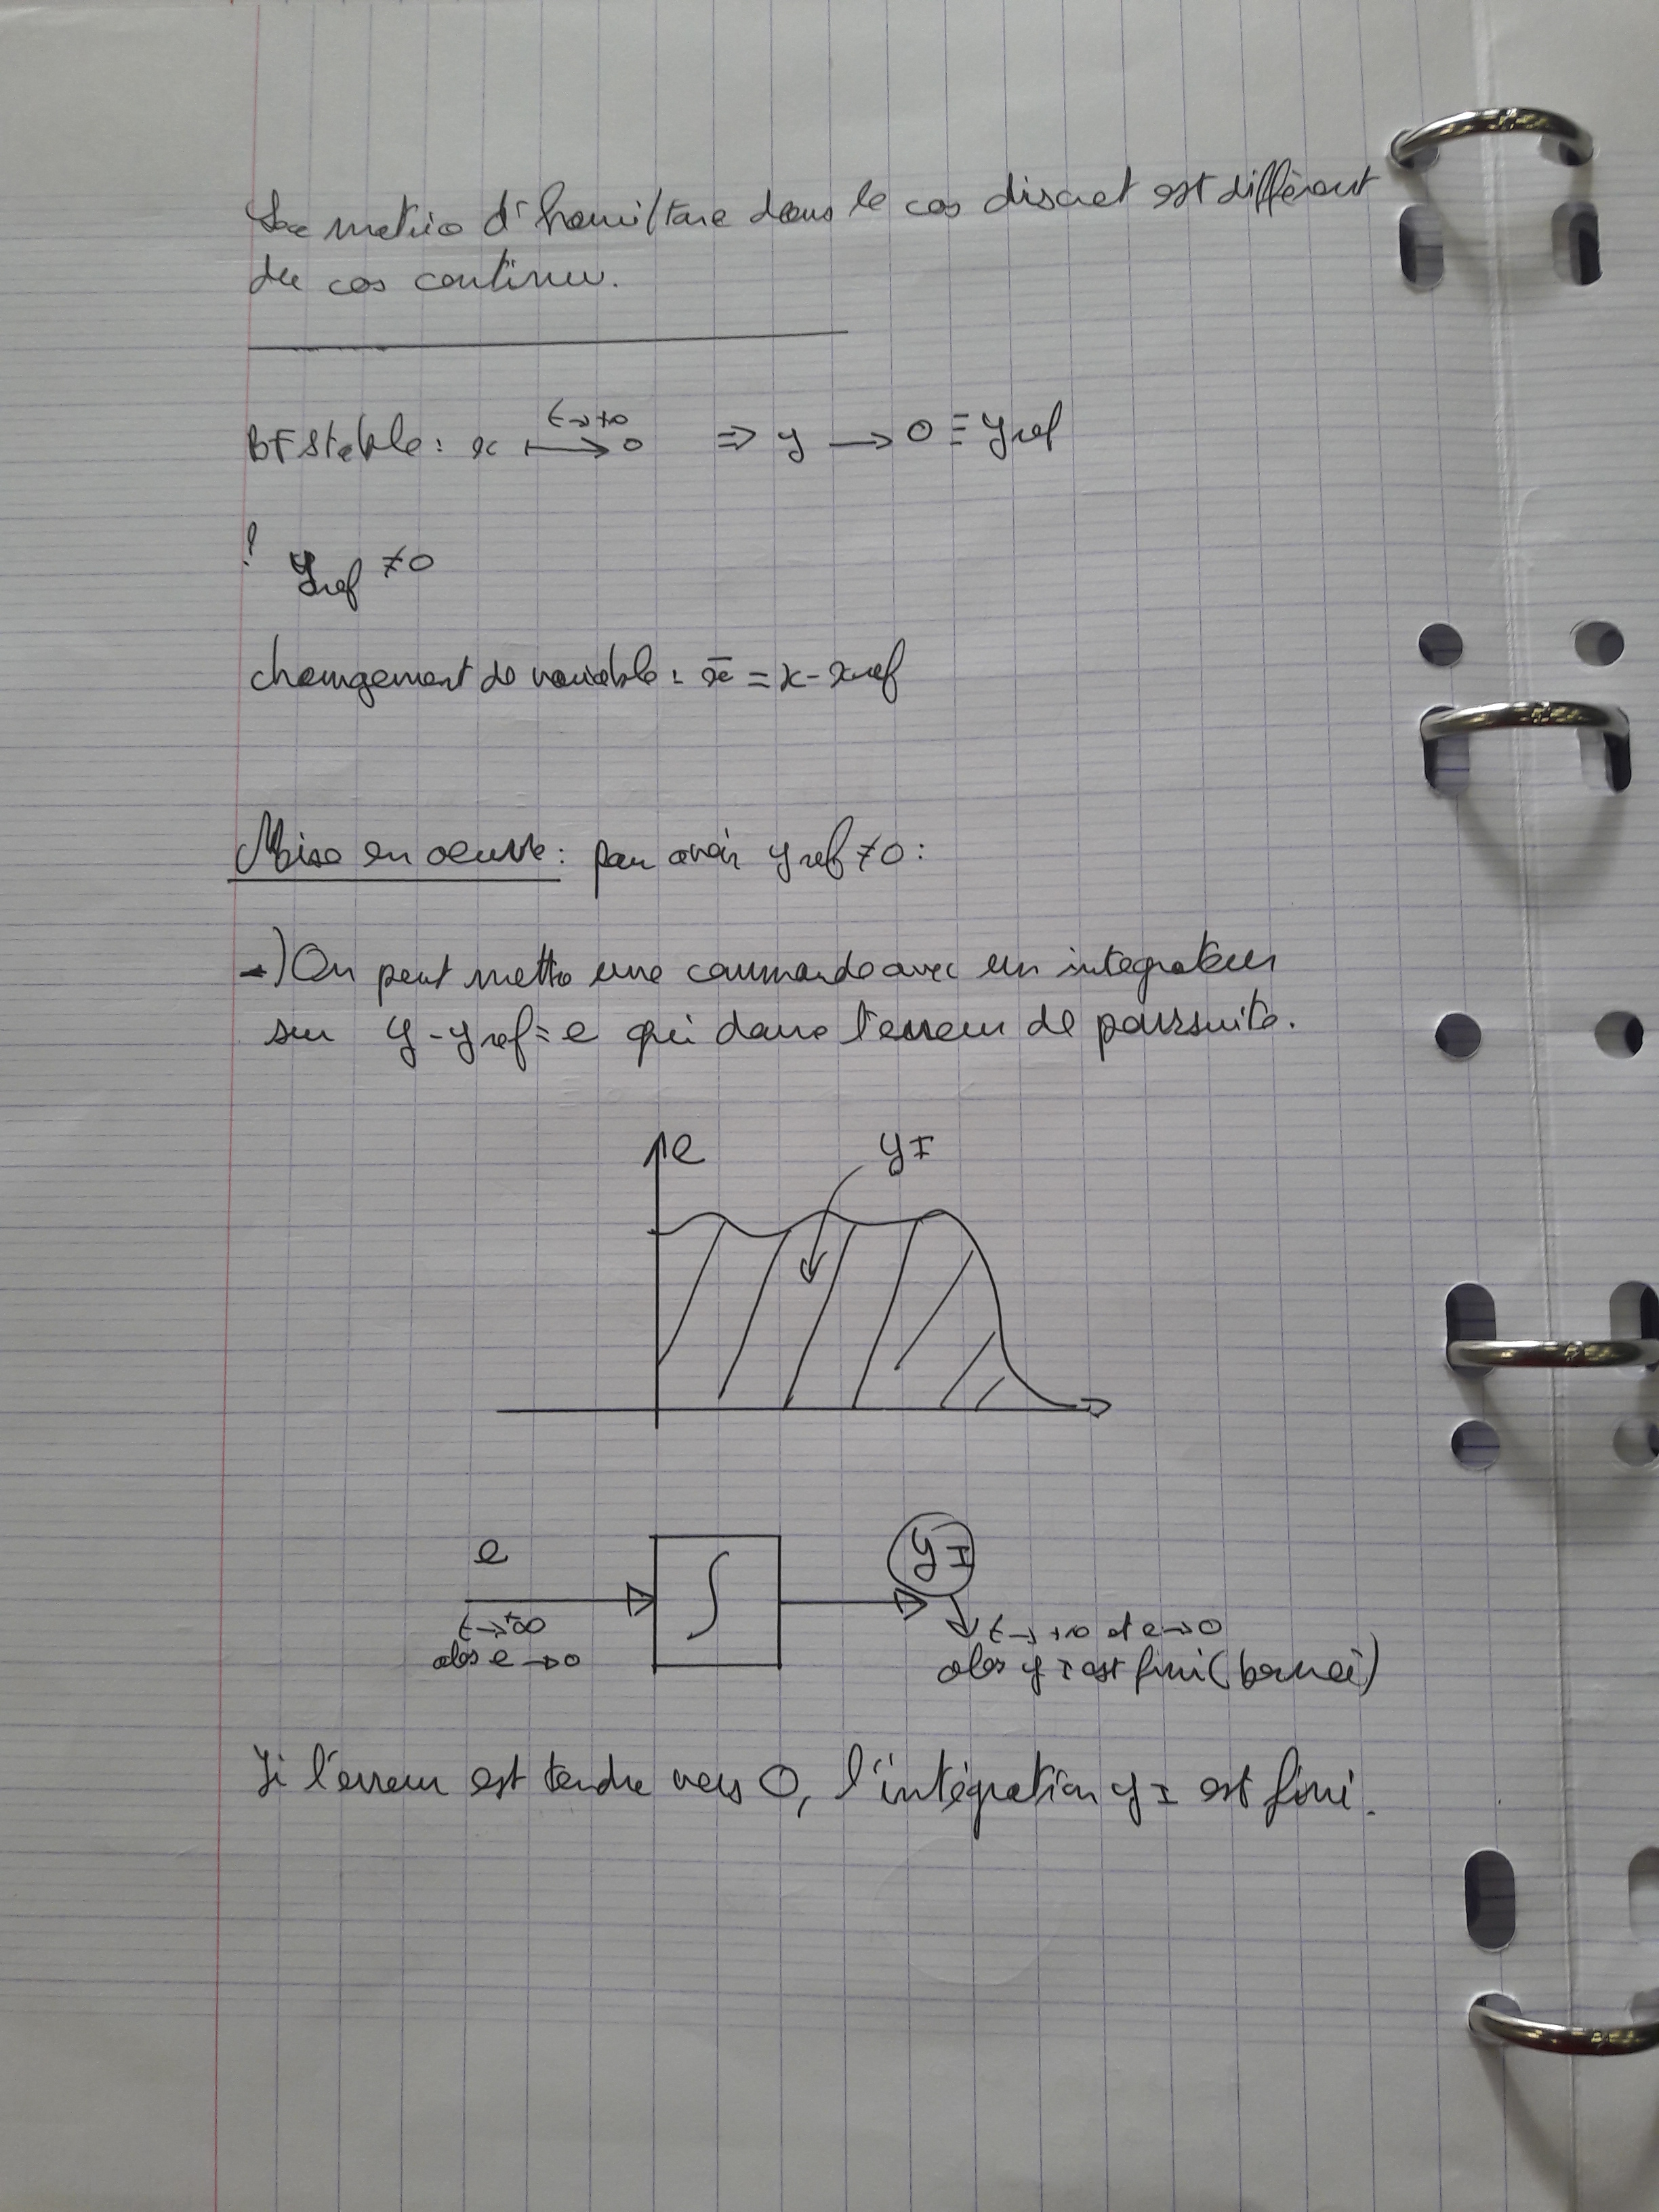 La matrice d'hamiltone dans le cas discret est différent
du cas continu.
BF stable : x t→+∞ ⟼ 0 ⇒ y → 0 ≡ yref
! yref ≠ 0
changement de variable : x̄ = x - xref
Mise en oeuvre : pour avoir yref ≠ 0 :
→) On peut mettre une commande avec un intégrateur
sur y - yref = e qui donne l'erreur de poursuite.
e
yI
e
∫
yI
t→+∞
alors e→0
t→+∞ et e→0
alors yI est fini (borné)
Si l'erreur est tendre vers 0, l'intégration yI est fini.